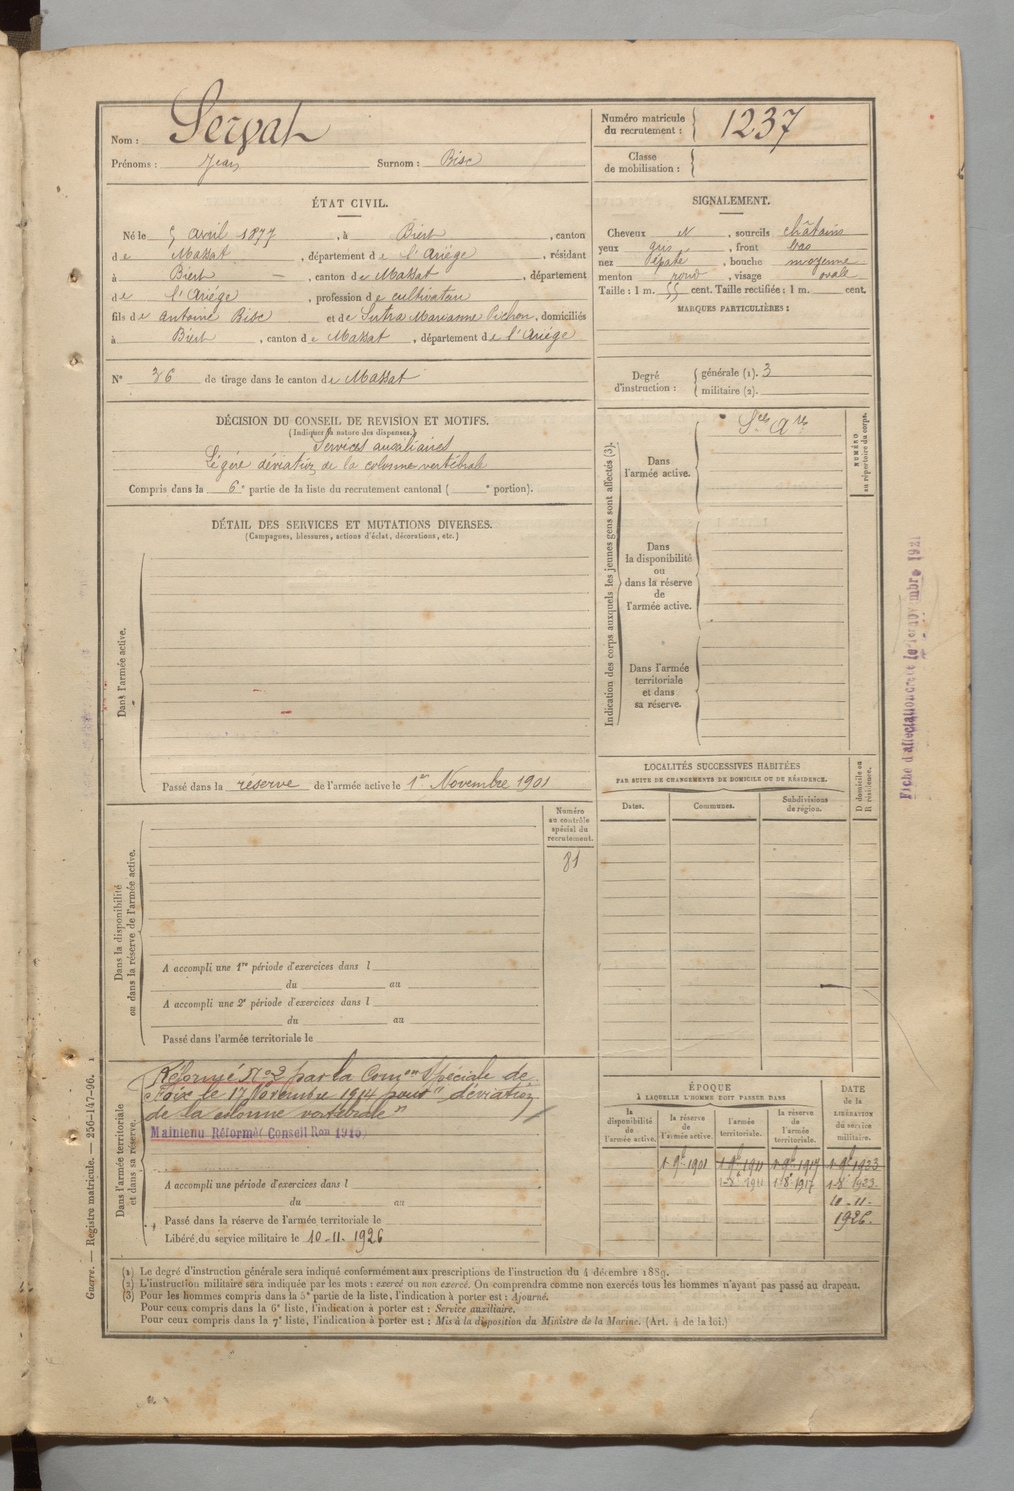 Nom : Servat
Prénoms : Jean Surnom : Bisc
Numéro matricule du recrutement : 1237
Classe de mobilisation :
ÉTAT CIVIL.
Né le 5 avril 1877, à Biert, canton
de Massat, département de l'Ariège, résidant
à Biert, canton de Massat, département
de l'Ariége, profession de cultivateur
fils de Antoine Bisc et de Sutra Marianne Pichon, domiciliés
à Biert, canton de Massat, département de l'Ariége
N° 36 de tirage dans le canton de Massat
SIGNALEMENT.
Cheveux N, sourcils châtains
yeux gris, front bas
nez épaté, bouche moyenne
menton rond, visage ovale
Taille : 1 m. 55 cent. Taille rectifiée : 1 m. cent.
MARQUES PARTICULIÈRES :
Degré d'instruction : générale (1). 3
militaire (2).
DÉCISION DU CONSEIL DE REVISION ET MOTIFS.
(Indiquer la nature des dispenses.)
Services auxiliaires
Légère déviation de la colonne vertébrale
Compris dans la 6e partie de la liste du recrutement cantonal ( e portion).
DÉTAIL DES SERVICES ET MUTATIONS DIVERSES.
(Campagnes, blessures, actions d'éclat, décorations, etc.)
Dans l'armée active.
Passé dans la réserve de l'armée active le 1er Novembre 1901
Indication des corps auxquels les jeunes gens sont affectés (3).
Dans l'armée active.
Dans la disponibilité ou dans la réserve de l'armée active.
Dans l'armée territoriale et dans sa réserve.
NUMÉRO au répertoire du corps.
Fiche d'affectation créée le 1er novembre 1921
LOCALITÉS SUCCESSIVES HABITÉES
PAR SUITE DE CHANGEMENTS DE DOMICILE OU DE RÉSIDENCE.
Dates. Communes. Subdivisions de région. D domicile ou R résidence.
Numéro au contrôle spécial du recrutement.
81
Dans la disponibilité ou dans la réserve de l'armée active.
A accompli une 1re période d'exercices dans l
du au
A accompli une 2e période d'exercices dans l
du au
Passé dans l'armée territoriale le
Dans l'armée territoriale et dans sa réserve.
Réformé N°2 par la Comon Spéciale de
Foix le 17 Novembre 1914 pour "déviation
de la colonne vertébrale"
Maintenu Réformé Conseil Ron 1916
A accompli une période d'exercices dans l
du au
Passé dans la réserve de l'armée territoriale le
Libéré du service militaire le 10-11-1926
ÉPOQUE
À LAQUELLE L'HOMME DOIT PASSER DANS
la disponibilité de l'armée active. la réserve de l'armée active. l'armée territoriale. la réserve de l'armée territoriale.
DATE de la LIBÉRATION du service militaire.
1 9bre 1901 1 9bre 1911 1 9bre 1917 1 9bre 1923
1 8bre 1911 1 8bre 1917 1 8bre 1923
10-11-
1926.
(1) Le degré d'instruction générale sera indiqué conformément aux prescriptions de l'instruction du 4 décembre 1889.
(2) L'instruction militaire sera indiquée par les mots : exercé ou non exercé. On comprendra comme non exercés tous les hommes n'ayant pas passé au drapeau.
(3) Pour les hommes compris dans la 5e partie de la liste, l'indication à porter est : Ajourné.
Pour ceux compris dans la 6e liste, l'indication à porter est : Service auxiliaire.
Pour ceux compris dans la 7e liste, l'indication à porter est : Mis à la disposition du Ministre de la Marine. (Art. 4 de la loi.)
Guerre. — Registre matricule. — 256-147-96.